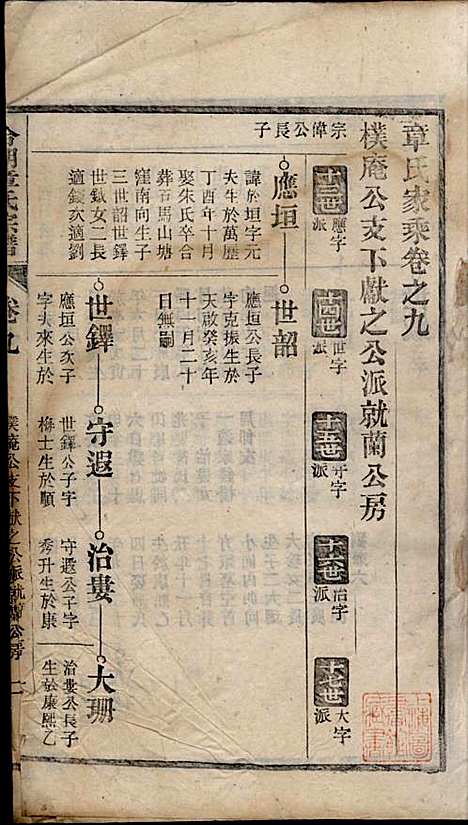 章氏家乘卷之九
樸庵公支下獻之公派就蘭公房
十三世 應字派
十四世 世字派
十五世 守字派
十六世 治字派
十七世 大字派
宗偉公長子
應垣
諱於垣字元
夫生於萬歷
丁酉年十月
娶朱氏卒合
葬五馬山塘
窪南向生子
三世韶世鐸
世鉞女二長
適錢次適劉
世韶
應垣公長子
字克振生於
天啟癸亥年
十一月二十
日無嗣
世鐸
應垣公次子
字夫來生於
守遐
世鐸公子字
梅士生於順
治婁
守遐公子字
秀升生於康
大珊
治婁公長子
生於康熙乙
章氏宗譜
卷九
樸庵公支下獻之公派就蘭公房